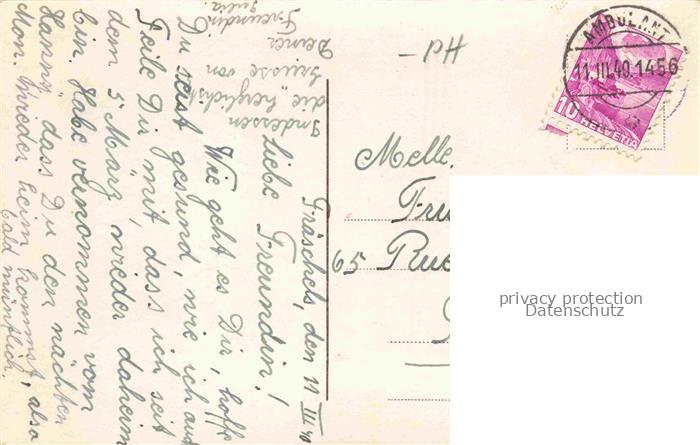 Fräschels, den 11 III 40
Liebe Freundin!
Wie geht es Dir, hoffe
Du seist gesund, wie ich auch
Teile Dir mit, dass ich seit
dem 5 März wieder daheim
bin. Habe vernommen vom
Hanny, dass Du den nächten
Mon. wieder heim kommst, also
bald mündlich.
Indessen
die herzlichst
Grüsse von
Deiner
Freundin
Julia.
-PH
AMBULANT
11.III.40.1456
10 HELVETIA
Melle.
65 Rue
privacy protection
Datenschutz